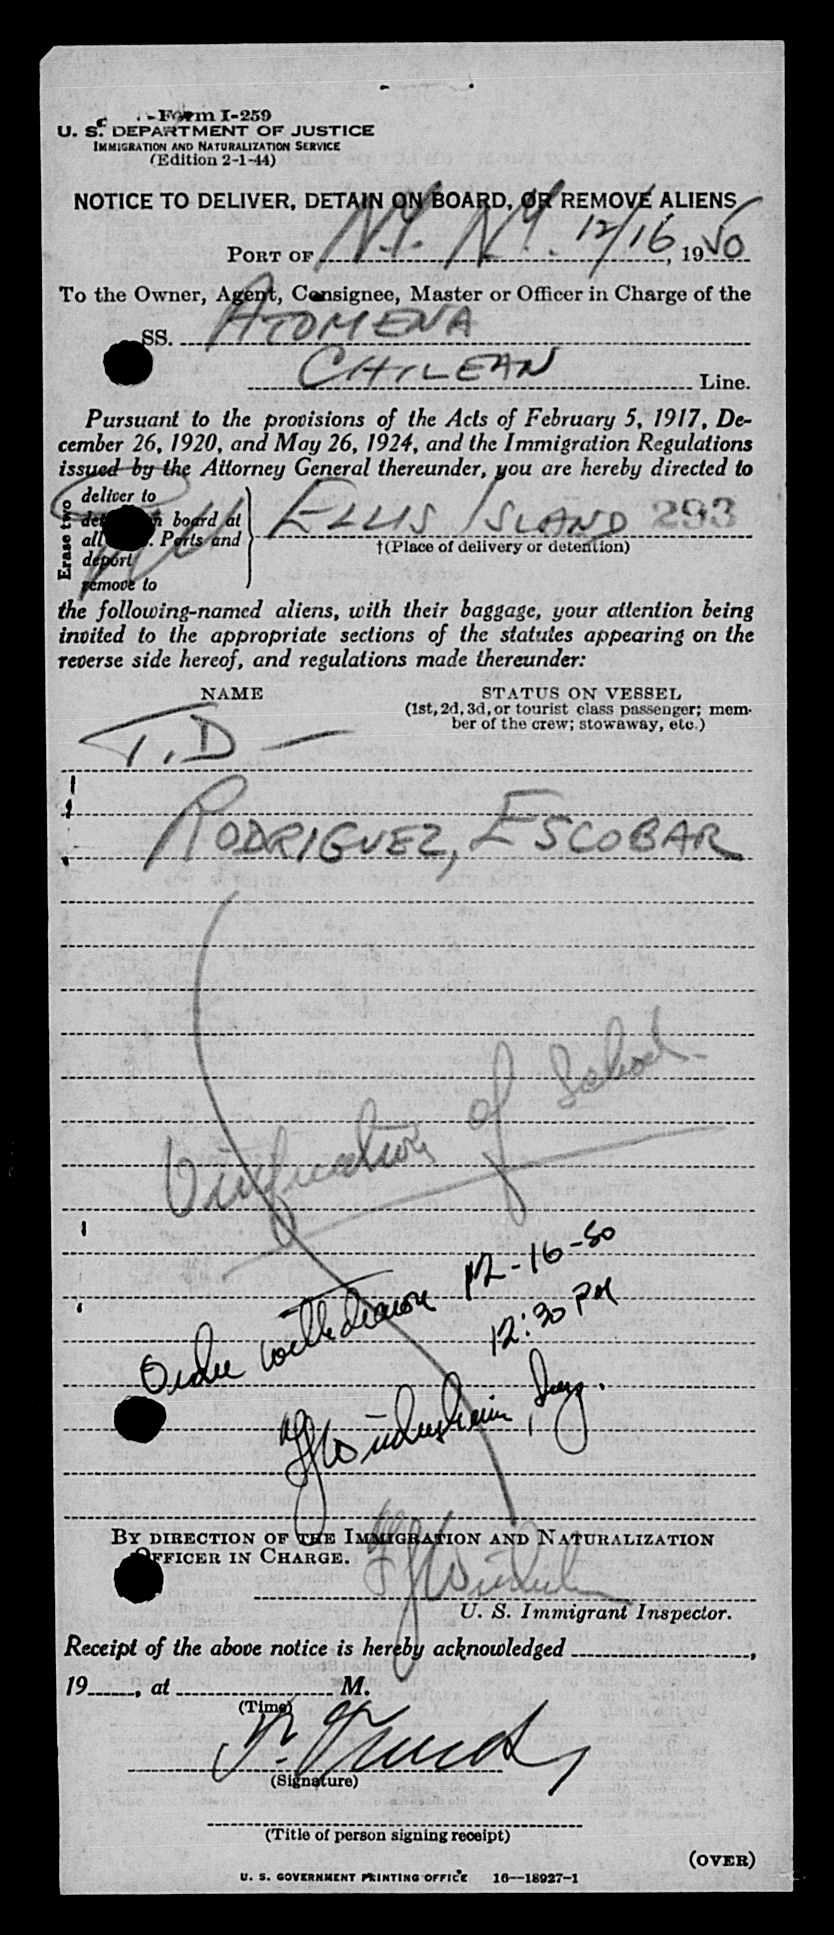 Form I-259
U. S. DEPARTMENT OF JUSTICE
IMMIGRATION AND NATURALIZATION SERVICE
(Edition 2-1-44)
NOTICE TO DELIVER, DETAIN ON BOARD, OR REMOVE ALIENS
PORT OF N.Y. N.Y. 12/16, 1950
To the Owner, Agent, Consignee, Master or Officer in Charge of the
SS. ATOMENA
CHILEAN Line.
Pursuant to the provisions of the Acts of February 5, 1917, De-
cember 26, 1920, and May 26, 1924, and the Immigration Regulations
issued by the Attorney General thereunder, you are hereby directed to
Erase two
deliver to
board at
all Ports and
deport
remove to
ELLIS ISLAND 293
†(Place of delivery or detention)
the following-named aliens, with their baggage, your attention being
invited to the appropriate sections of the statutes appearing on the
reverse side hereof, and regulations made thereunder:
NAME STATUS ON VESSEL
(1st, 2d, 3d, or tourist class passenger; mem-
ber of the crew; stowaway, etc.)
T.D —
RODRIGUEZ, ESCOBAR
Verification of School
Order withdrawn 12-16-50
12:30 PM
BY DIRECTION OF THE IMMIGRATION AND NATURALIZATION
OFFICER IN CHARGE.
U. S. Immigrant Inspector.
Receipt of the above notice is hereby acknowledged ,
19 , at M.
(Time)
(Signature)
(Title of person signing receipt)
(OVER)
U. S. GOVERNMENT PRINTING OFFICE 16—18927-1